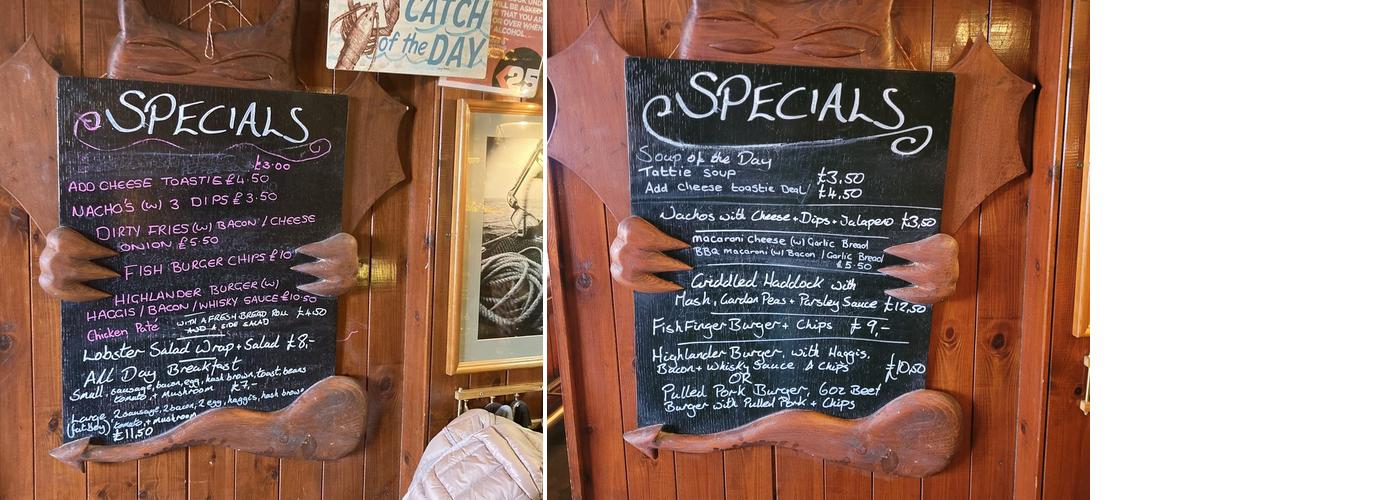 CATCH
of the DAY
WILL BE ASKED
E THAT YOU AR
OR OVER WHEN
ALCOHOL...
25
SPECIALS
£3.00
ADD CHEESE TOASTIE £4.50
NACHO'S (W) 3 DIPS £3.50
DIRTY FRIES (W) BACON / CHEESE
ONION £5.50
FISH BURGER CHIPS £10
HIGHLANDER BURGER (W)
HAGGIS / BACON / WHISKY SAUCE £10.50
Chicken Paté WITH A FRESH BREAD ROLL £4.50
AND A SIDE SALAD
Lobster Salad Wrap + Salad £8,-
All Day Breakfast
Small, sausage, bacon, egg, hash brown, toast, beans
tomato, + Mushroom £7,-
Large 2 sausage, 2 bacon, 2 egg, haggis, hash brow
(fat Boy) tomato, + mushroom
£11,50
SPECIALS
Soup of the Day
Tattie soup £3,50
Add cheese toastie Deal £4,50
Nachos with Cheese + Dips + Jalapeno £3,50
macaroni cheese (w) Garlic Bread
BBQ macaroni (w) Bacon / Garlic Bread
£5.50
Griddled Haddock with
Mash, Garden Peas + Parsley Sauce £12,50
FishFinger Burger + Chips £9,-
Highlander Burger, with Haggis,
Bacon + Whisky Sauce & Chips £10,50
OR
Pulled Pork Burger, 6oz Beef
Burger with Pulled Pork + Chips